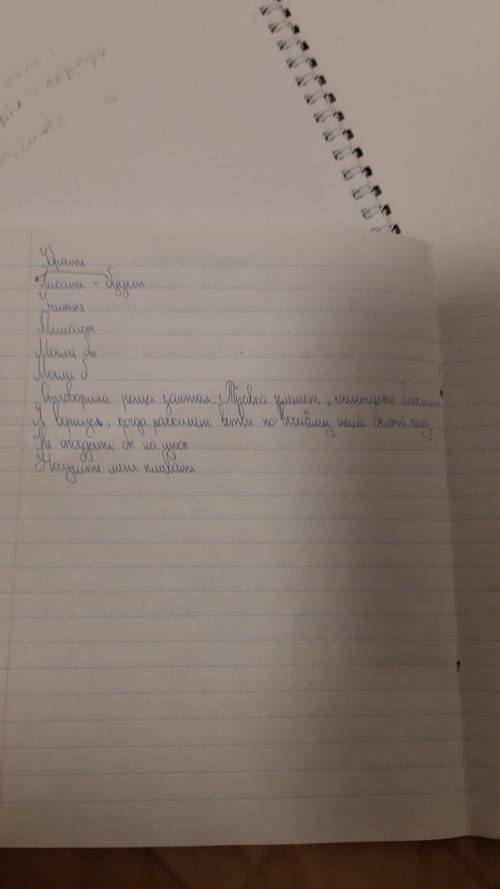 Убрать
Писать - будет
Учить
Мешают
Могла бы
Могла б
Отговорила роща золотая. Травка зеленеет, солнышко блестит
Я вернусь, когда раскинет ветви по-весеннему наш белый сад
Не опоздать бы на урок
Научите меня плавать